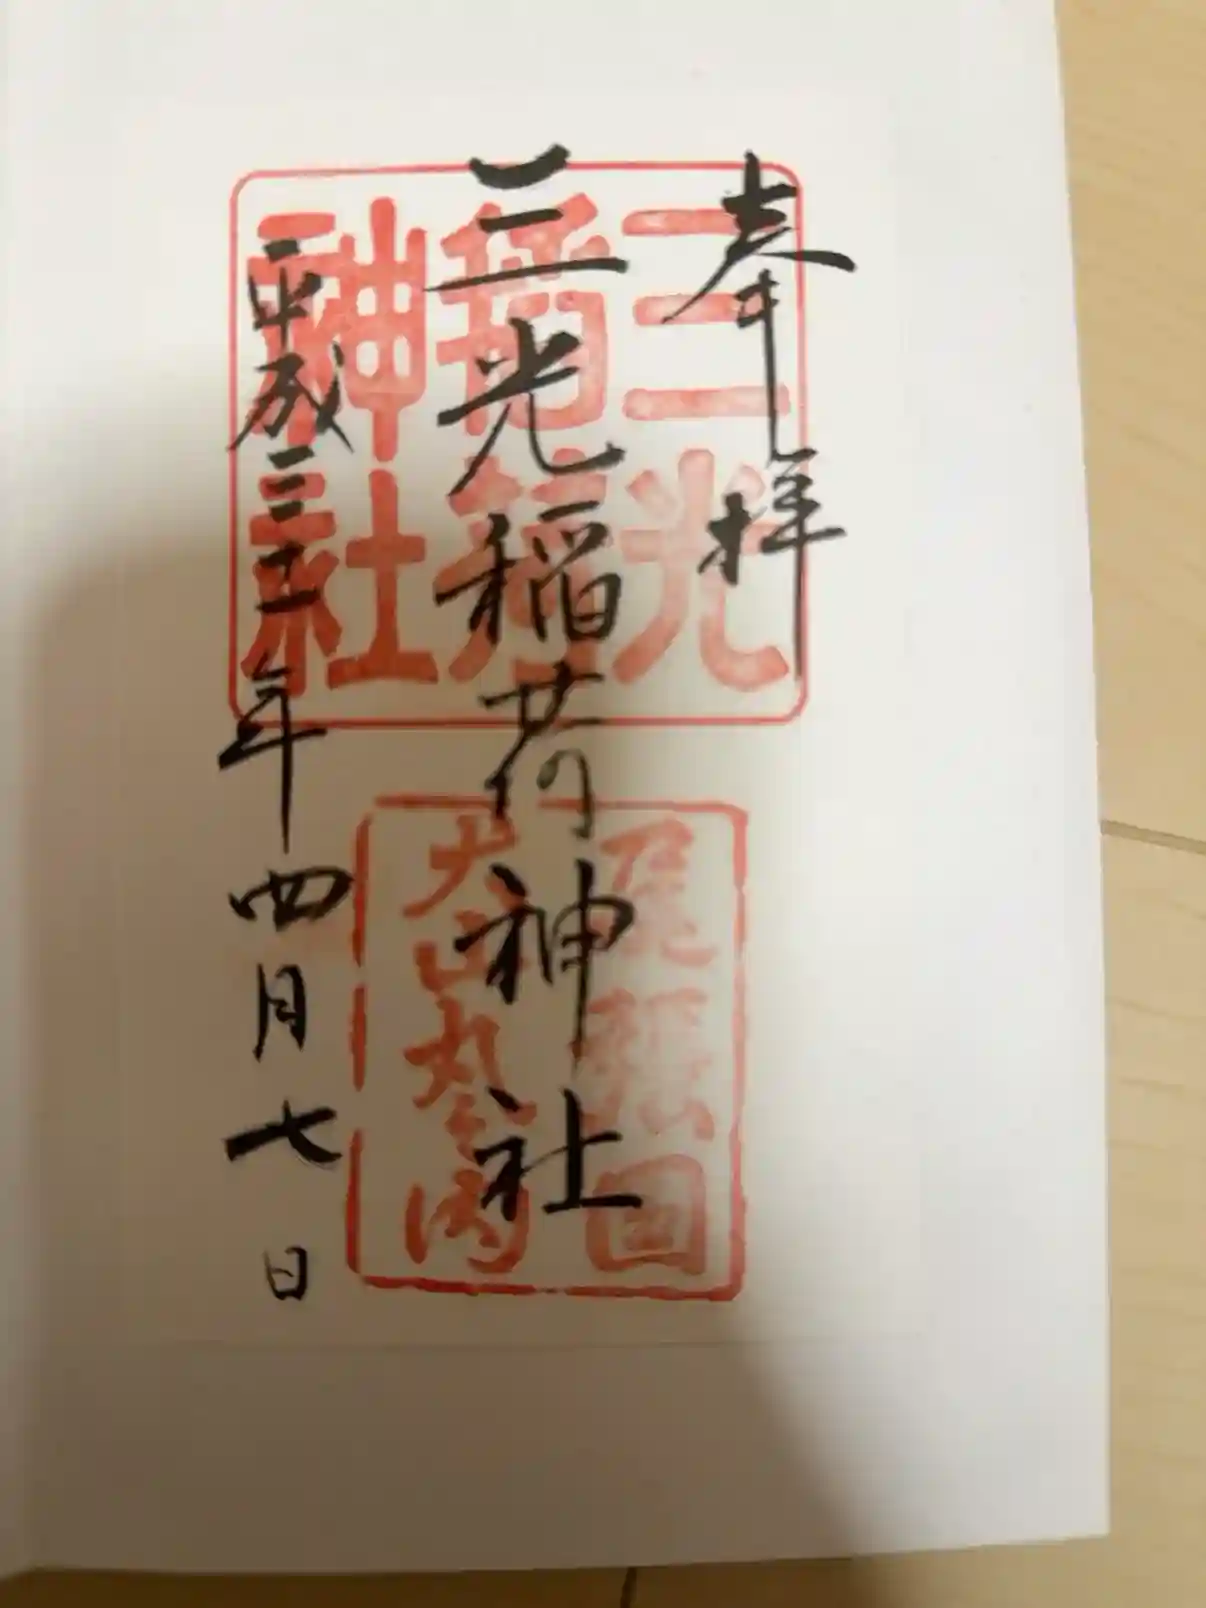 奉拝
三光稲荷神社
平成三十一年四月七日
三光
稲荷
神社
尾張国
犬山丸之内